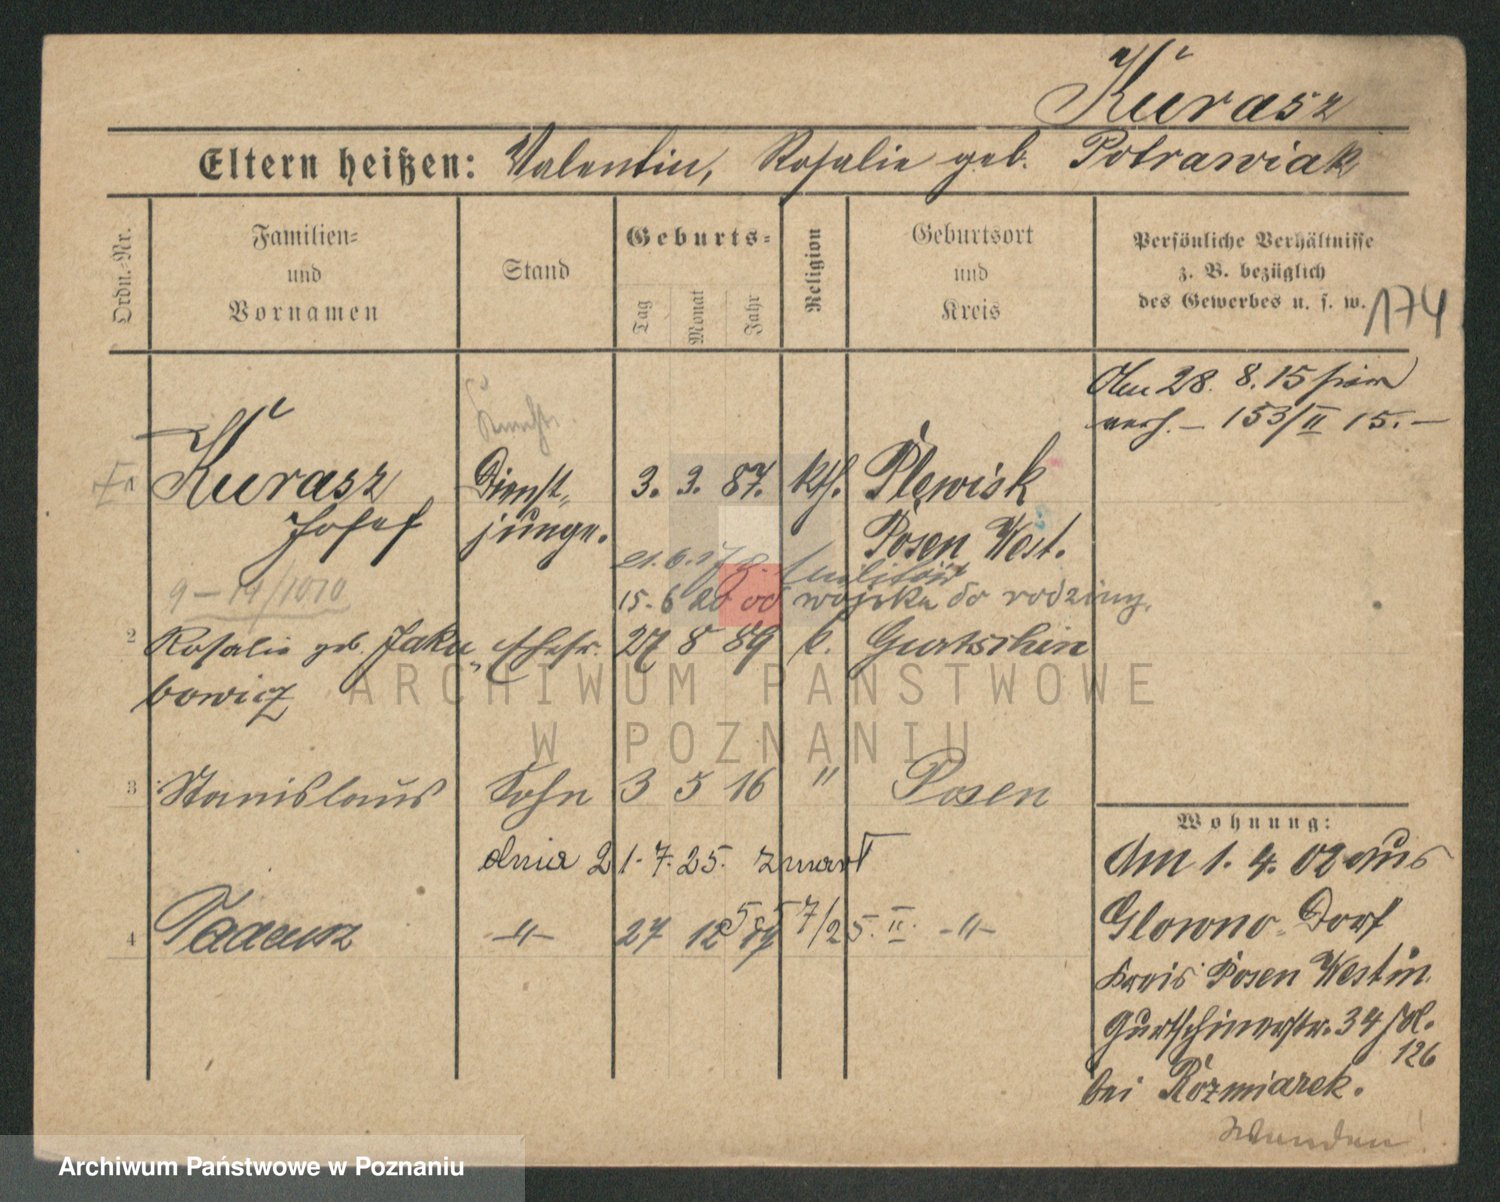 Kurasz
Eltern heißen: Valentin, Rosalie geb. Potrawiak
Ordn.-Nr.
Familien-
und
Vornamen
Stand
Geburts-
Tag
Monat
Jahr
Religion
Geburtsort
und
Kreis
Persönliche Verhältnisse
z. B. bezüglich
des Gewerbes u. s. w.
174
28. 8. 15 hier
verh. – 153/II 15. –
Knecht
1 Kurasz Dienst- 3. 3. 87. kth. Plewisk
Josef junge. Posen West.
21. 6. 17 z. Militär
15-6 20 od wojska do rodziny.
2 Rosalie geb. Jaku Ehefr. 27 8 89 k. Gurtschin
bowicz
3 Stanislaus Sohn 3 5 16 " Posen
dnia 21-7-25. zmarł
4 Tadeusz -"- 27 12 19 7/25. II. -"-
Wohnung:
Am 1. 4. 02 aus
Glowno Dorf
Kreis Posen West in
Gurtschinerstr. 34 fol.
126
bei Rozmiarek.
ARCHIWUM PAŃSTWOWE
W POZNANIU
Archiwum Państwowe w Poznaniu